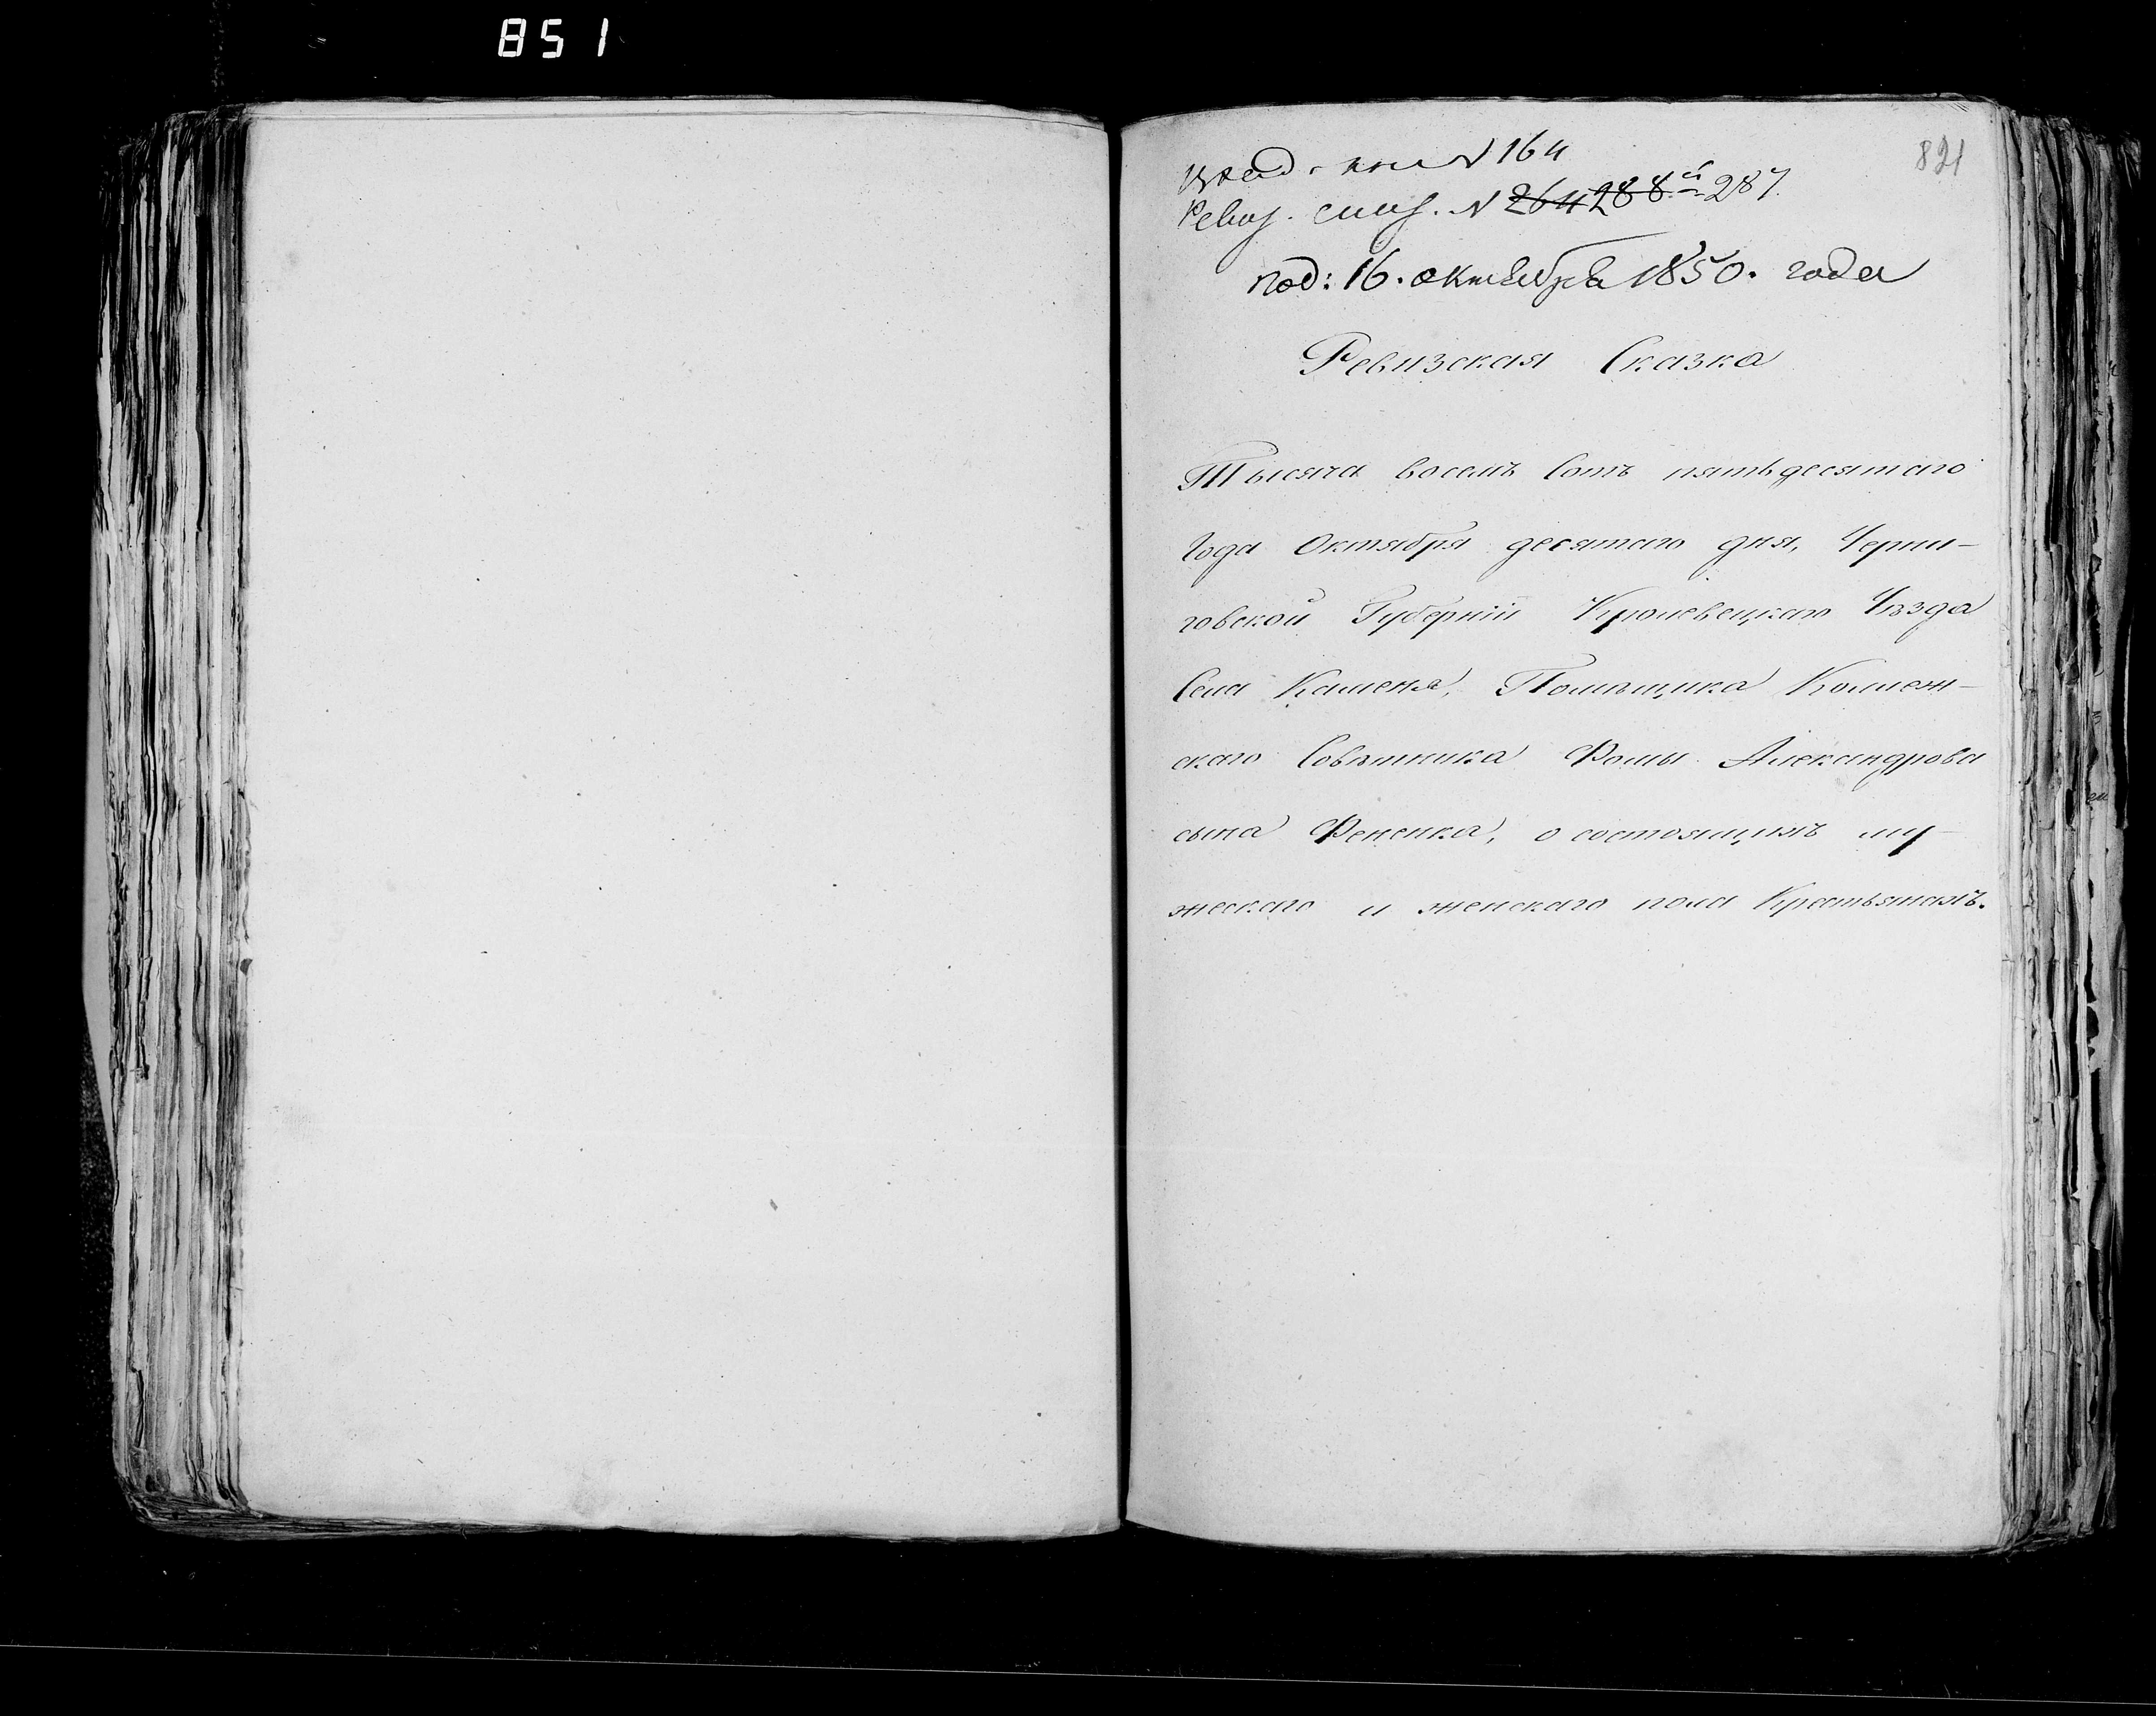 851
821
Вход. № 164
Ревиз. № 264 288й 287.
под: 16. октября 1850. года
Ревизская Сказка
Тысяча восемъ Сотъ пятьдесятаго
Года Октября десятаго дня, Черни-
говской Губерніи Кролевецкаго Уѣзда
Села Каменя, Помѣщика Коллеж-
скаго Совѣтника Фомы Александрова
сына Фененка, о состоящихъ му-
жескаго и женскаго пола Крестьянахъ.